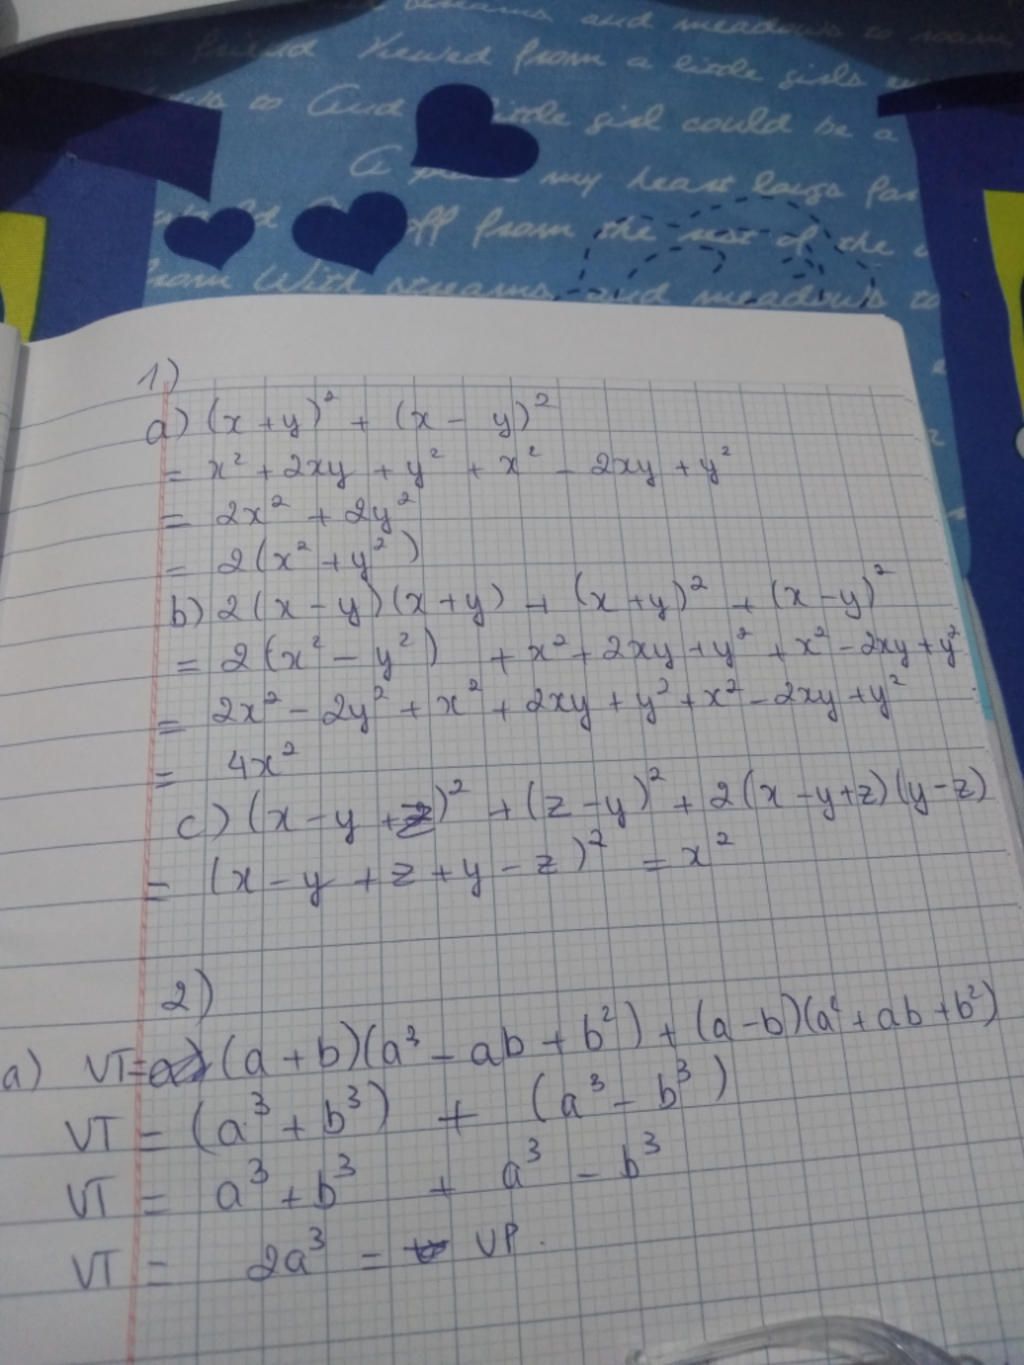 streams and meadows to roam
friend Viewed from a little girls
to And little girl could be a
A my heart longs for
off from the rest of the
from With streams and meadows to
1)
a) (x+y)² + (x - y)²
= x² + 2xy + y² + x² - 2xy + y²
= 2x² + 2y²
= 2(x² + y²)
b) 2(x-y)(x+y) + (x+y)² + (x-y)²
= 2(x² - y²) + x² + 2xy + y² + x² - 2xy + y²
= 2x² - 2y² + x² + 2xy + y² + x² - 2xy + y²
= 4x²
c) (x-y+z)² + (z-y)² + 2(x-y+z)(y-z)
= (x-y+z+y-z)² = x²
2)
a) VT= (a+b)(a³ - ab + b²) + (a-b)(a² + ab + b²)
VT = (a³ + b³) + (a³ - b³)
VT = a³ + b³ + a³ - b³
VT = 2a³ = VP.